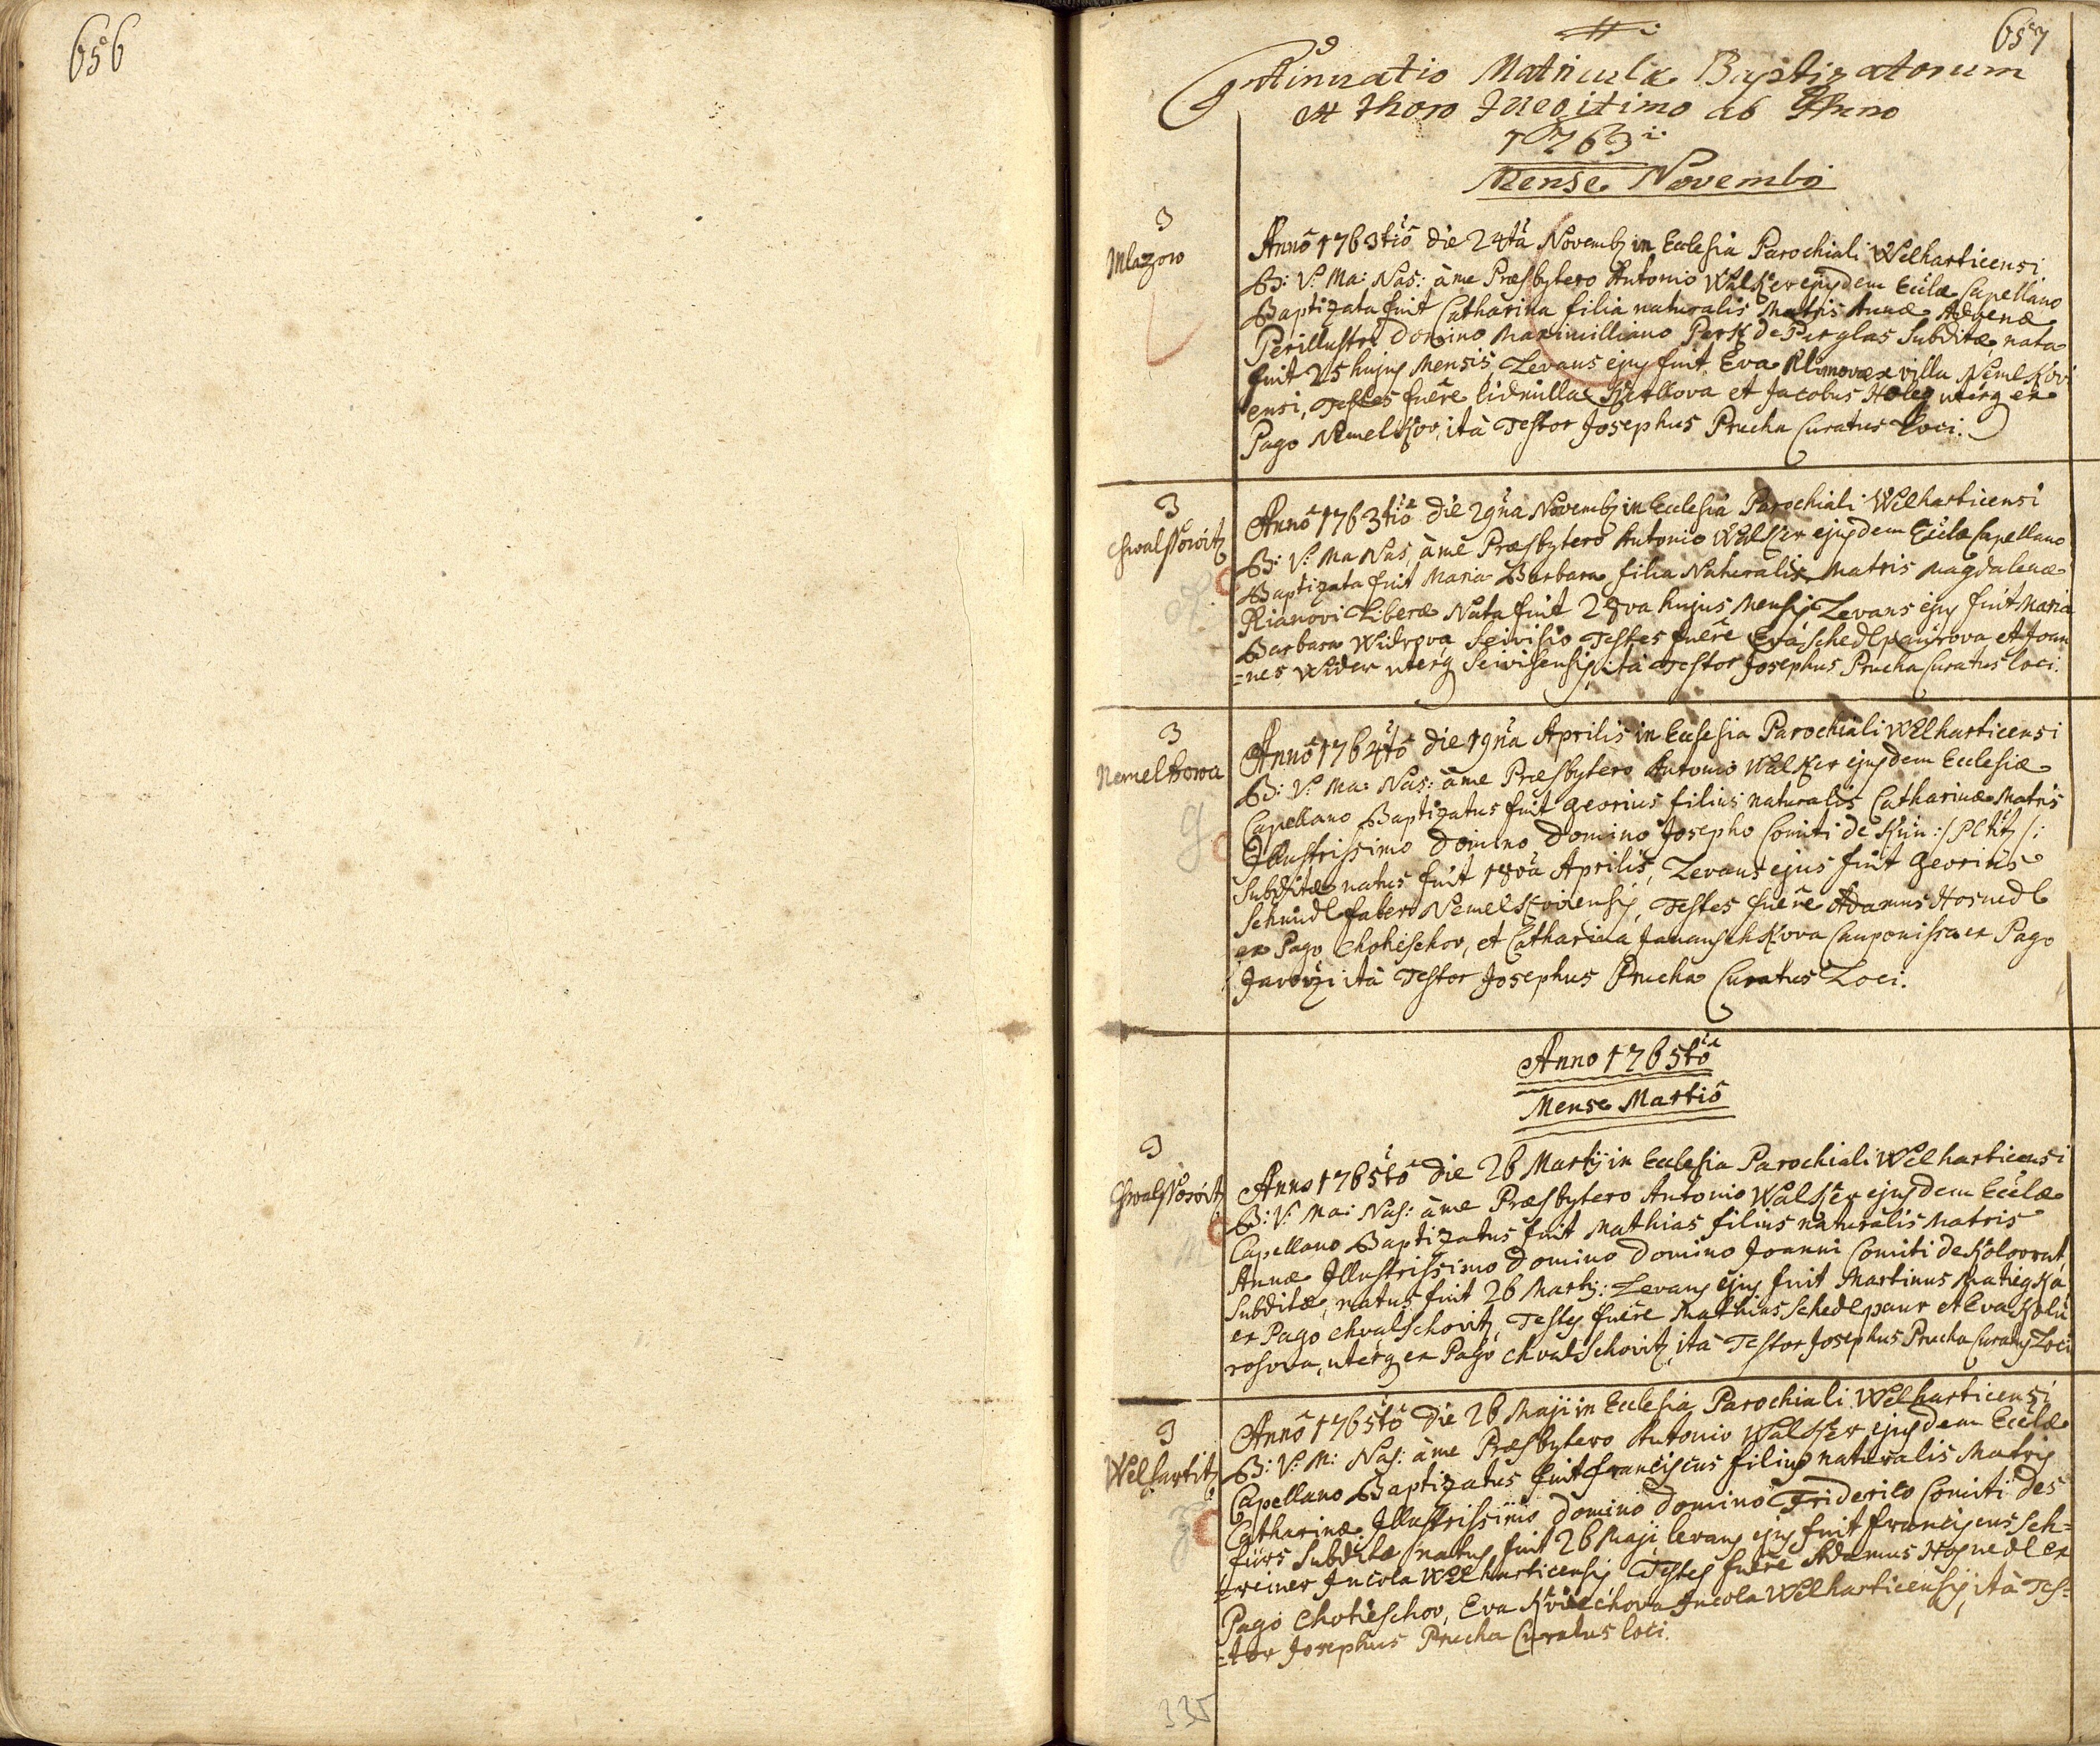 656
657
Continuatio Matriculæ Baptizatorum
ex thoro Illegitimo ab Anno
1763
Mense Novembri
3
Mlazow
Annô 1763tiô die 24tâ Novemb in Ecclesia Parochiali Welharticensi
B: V: Ma: Nas: à me Præsbytero Antonio Walker ejusdem Eccłæ Capellano
Baptizata fuit Catharina filia naturalis Matris Annæ Advenæ
Perillustri Domino Maximilliano Perk de Perglas Subditæ, nata
fuit 25 hujus Mensis, Levans ejus fuit Eva Klimova ex villa Nemelkovi
ensi, Testes fuêre Lidmilla et Jacobus uterq ex
Pago Nemelkov, ità Testor Josephus Prucha Curatus Loci.
3
Chwalssowitz
Annô 1763tiô die 29na Novemb in Ecclesia Parochiali Welharticensi
B: V: Ma Nas, à me Præsbytero Antonio Walker ejusdem Eccłæ Capellano
Baptizata fuit Maria Barbara, filia Naturalis Matris Magdalenæ
Rianovi Liberæ Nata fuit 28va hujus Mensis, Levans ejus fuit Maria
Barbara Widrova, Seivisio Testes fuêre Eva Schedlpaurova et Joan
=nes Wider uterq Seivisensis, ita Testor Josephus Prucha Curatus loci.
3
Nemelkowa
Annô 1764tô die 19na Aprilis in Ecclesia Parochiali Welharticensi
B: V: Ma: Nas: à me Præsbytero Antonio Walker ejusdem Ecclesiæ
Capellano Baptizatus fuit Georius filius naturalis Catharinæ Matris
Illustrissimo Domino Domino Josepho Comiti de Kün :/Pltit/:
Subditæ natus fuit 18va Aprilis, Levans ejus fuit Georius
Schmidl faber Nemelkoviensis, Testes fuêre Adamus Hosnedl
ex Pago Chotieschov, et Catharina Janauschkova Cauponissa ex Pago
Javorzi ità Testor Josephus Prucha Curatus Loci.
Anno 1765tô
Mense Martiô
3
Chwalssowitz
Anno 1765tô die 26 Martÿ in Ecclesia Parochiali Welharticensi
B: V: Ma: Nas: à me Præsbytero Antonio Walker ejusdem Eccłæ
Capellano Baptizatus fuit Mathias filius naturalis Matris
Annæ Illustrissimo Domino Domino Joanni Comiti de Kolovrat
Subditæ, natus fuit 26 Marty: Levans ejus fuit Martinus Matiegka
ex Pago Chvalschovitz, Testes fuêre Mathias Schedlpaur et Eva Kolu
rosova, uterq ex Pago Chvalschovitz, ità Testor Josephus Prucha Curatus Loci
3
Welhartitz
Annô 1765tô die 26 Maji in Ecclesia Parochiali Welharticensi
B: V: M: Nas: à me Præsbytero Antonio Walker ejusdem Eccłæ
Capellano Baptizatus fuit Franciscus filius naturalis Matris
Catharinæ Illustrissimo Domino Domino Friderico Comiti des
fürs Subditæ natus fuit 26 Maji, levans ejus fuit Franciscus Sch=
=reiner Incola Welharticensis Testes fuêre Adamus Hosnedl ex
Pago Chotieschov, Eva Incola Welharticensis, ità Tes=
=tor Josephus Prucha Curatus loci.
335